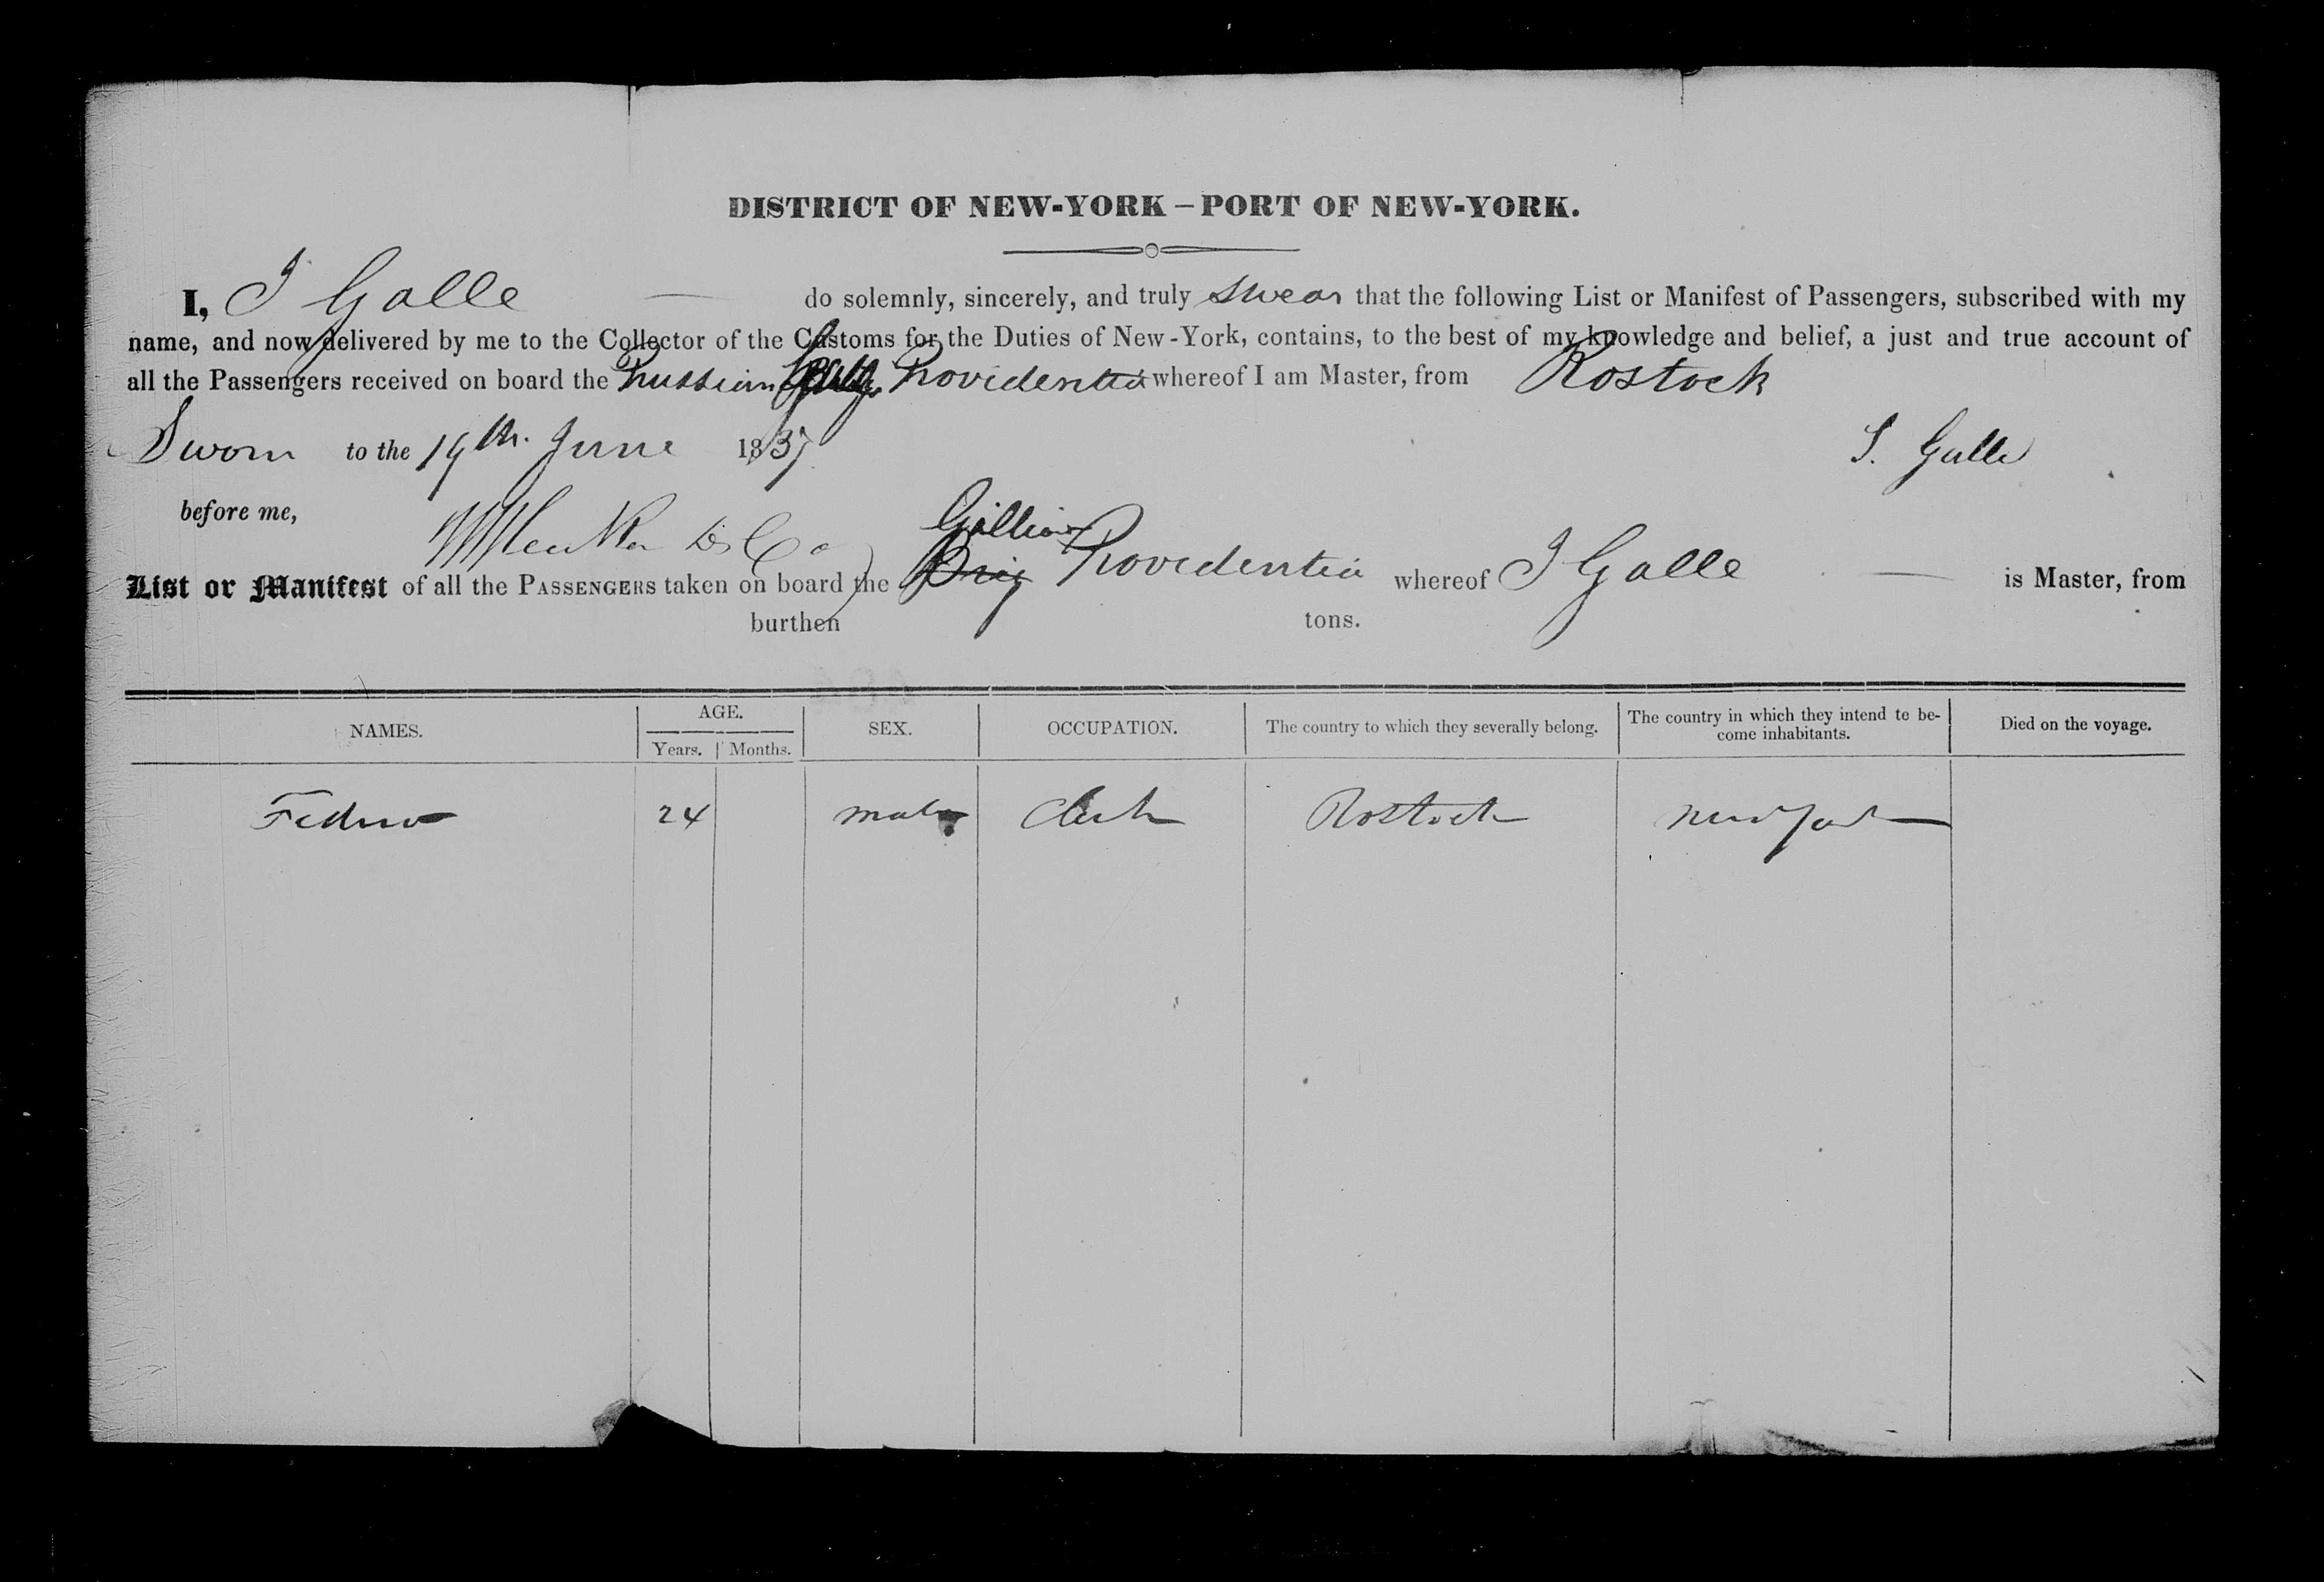 DISTRICT OF NEW-YORK – PORT OF NEW-YORK.
I, J Galle — do solemnly, sincerely, and truly swear that the following List or Manifest of Passengers, subscribed with my
name, and now delivered by me to the Collector of the Customs for the Duties of New-York, contains, to the best of my knowledge and belief, a just and true account of
all the Passengers received on board the Prussian Providentia whereof I am Master, from Rostock
Sworn to the 19th. June 1837
J. Galle
before me,
List or Manifest of all the PASSENGERS taken on board the Brig Providentia whereof J Galle — is Master, from
burthen tons.
NAMES. AGE. SEX. OCCUPATION. The country to which they severally belong. The country in which they intend te be-come inhabitants. Died on the voyage.
Years. Months.
24 male Clerk Rostock New York